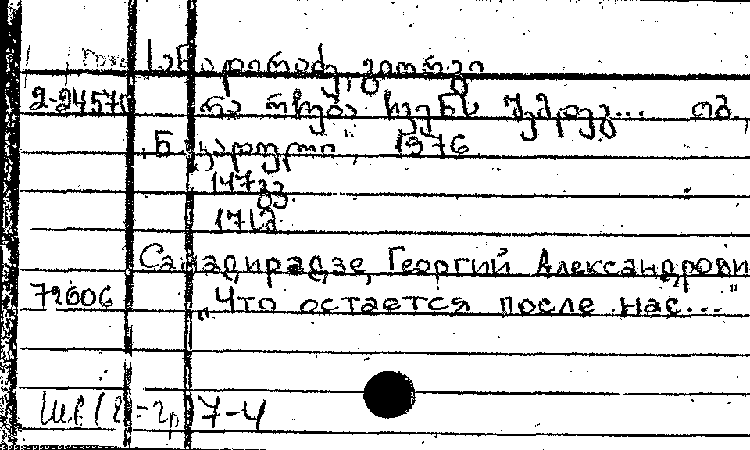 სანადირაძე, გიორგი
2-24570 რა რჩება ჩვენს შემდეგ... თბ.,
"ნაკადული", 1976
147გვ.
Санадирадзе, Георгий Александрови
72606 "Что остается после нас..."
7-4